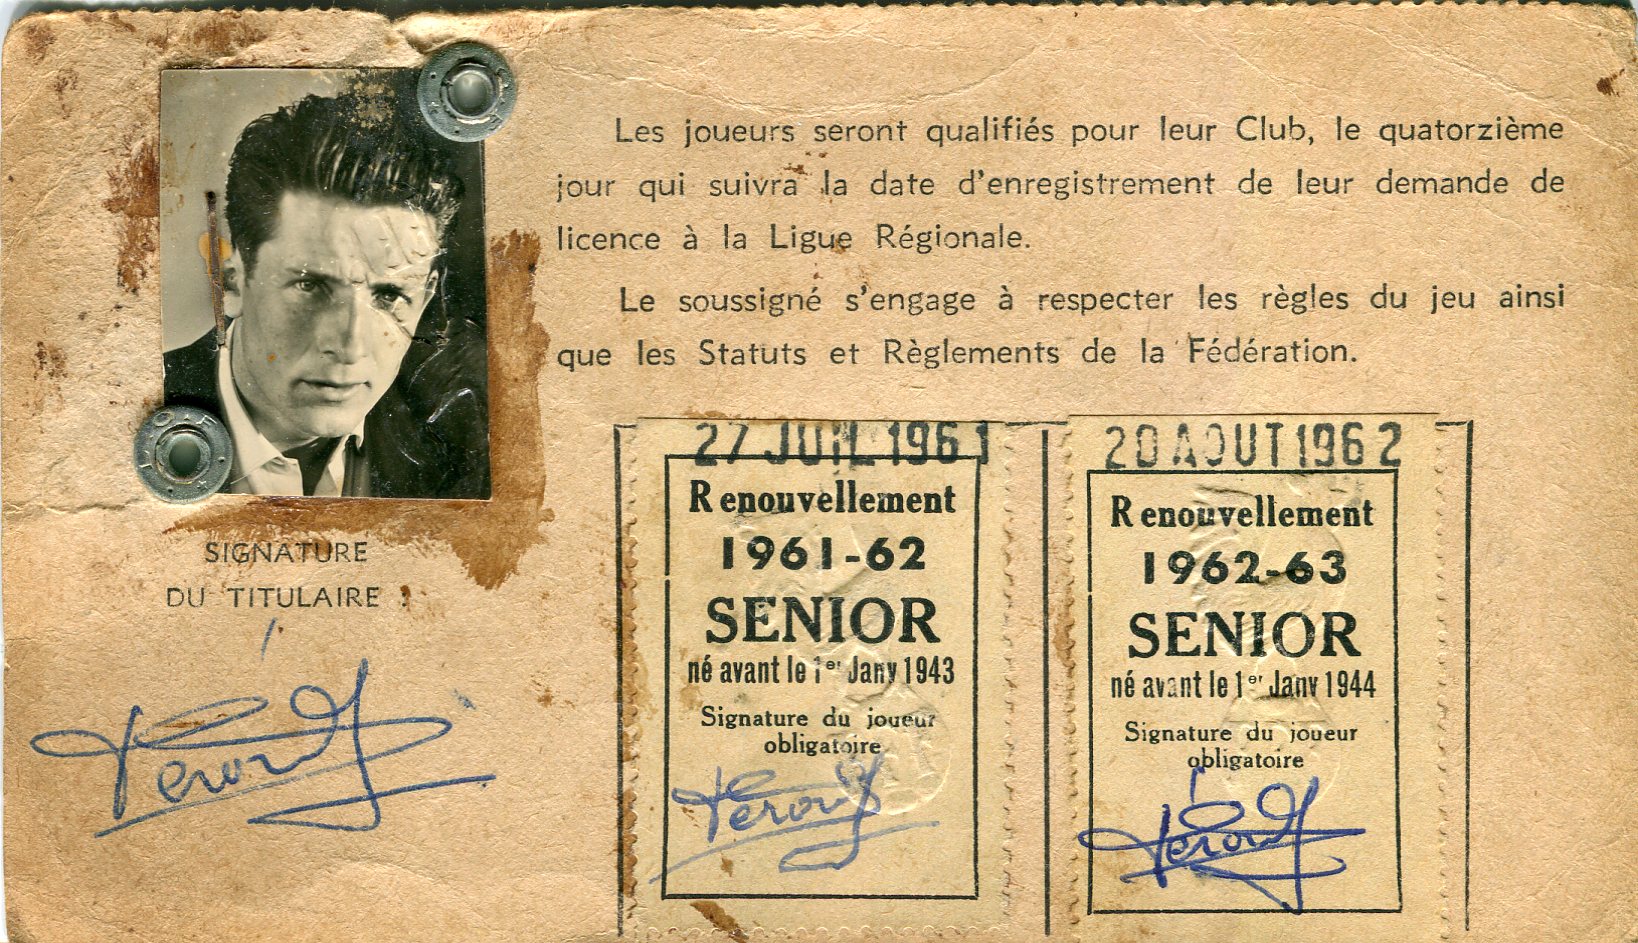 Les joueurs seront qualifiés pour leur Club, le quatorzième
jour qui suivra la date d'enregistrement de leur demande de
licence à la Ligue Régionale.
Le soussigné s'engage à respecter les règles du jeu ainsi
que les Statuts et Règlements de la Fédération.
SIGNATURE
DU TITULAIRE :
27 JUIL 1961
Renouvellement
1961-62
SENIOR
né avant le 1er Janv 1943
Signature du joueur
obligatoire
20 AOUT 1962
Renouvellement
1962-63
SENIOR
né avant le 1er Janv 1944
Signature du joueur
obligatoire